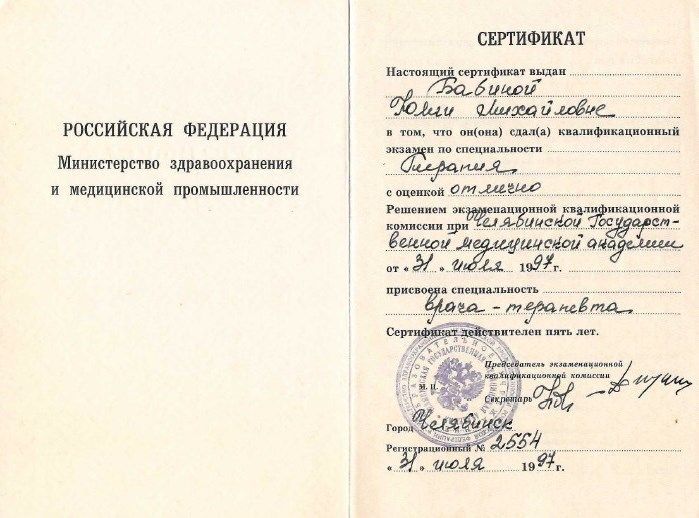 РОССИЙСКАЯ ФЕДЕРАЦИЯ
Министерство здравоохранения
и медицинской промышленности
СЕРТИФИКАТ
Настоящий сертификат выдан
Бабиной
Юлии Михайловне
в том, что он(она) сдал(а) квалификационный
экзамен по специальности
Терапия
с оценкой отлично
Решением экзаменационной квалификационной
комиссии при Челябинской Государст-
венной медицинской академии
от «31» июля 1997г.
присвоена специальность
врача-терапевта
Сертификат действителен пять лет.
Председатель экзаменационной
квалификационной комиссии
М. П.
Секретарь
Город Челябинск
Регистрационный № 2554
«31» июля 1997г.